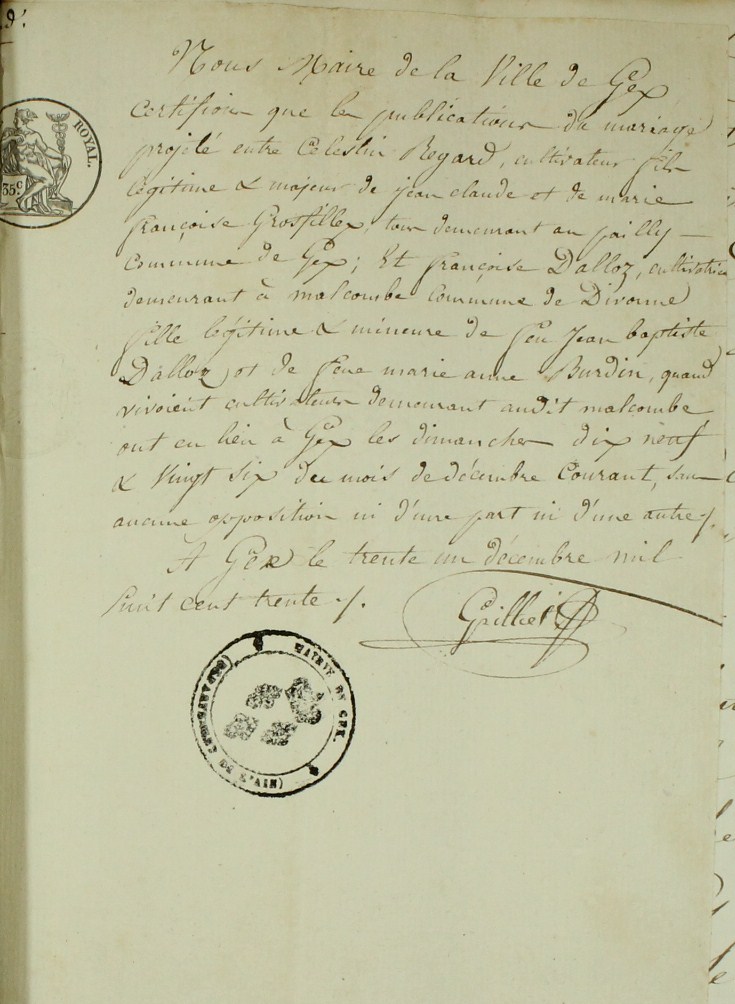 d'.
ROYAL.
35.c
Nous Maire de la Ville de Gex
certifions que les publications du mariage
projeté entre Celestin Regard, cultivateur fils
légitime & majeur de jean claude et de marie
françoise Grosfillex, tous demeurant au pailly —
commune de Gex; Et françoise Dalloz, cultivatrice
demeurant à malcombe commune de Divonne
fille légitime & mineure de feu Jean baptiste
Dalloz et de feue marie anne Burdin, quand
vivoient cultivateurs demeurant audit malcombe
ont eu lieu à Gex les dimanches dix neuf
& Vingt six du mois de décembre Courant, sans
aucune opposition ni d'une part ni d'une autre.
A Gex le trente un décembre mil
huit cent trente.
MAIRIE DE GEX.
(DE L'AIN)